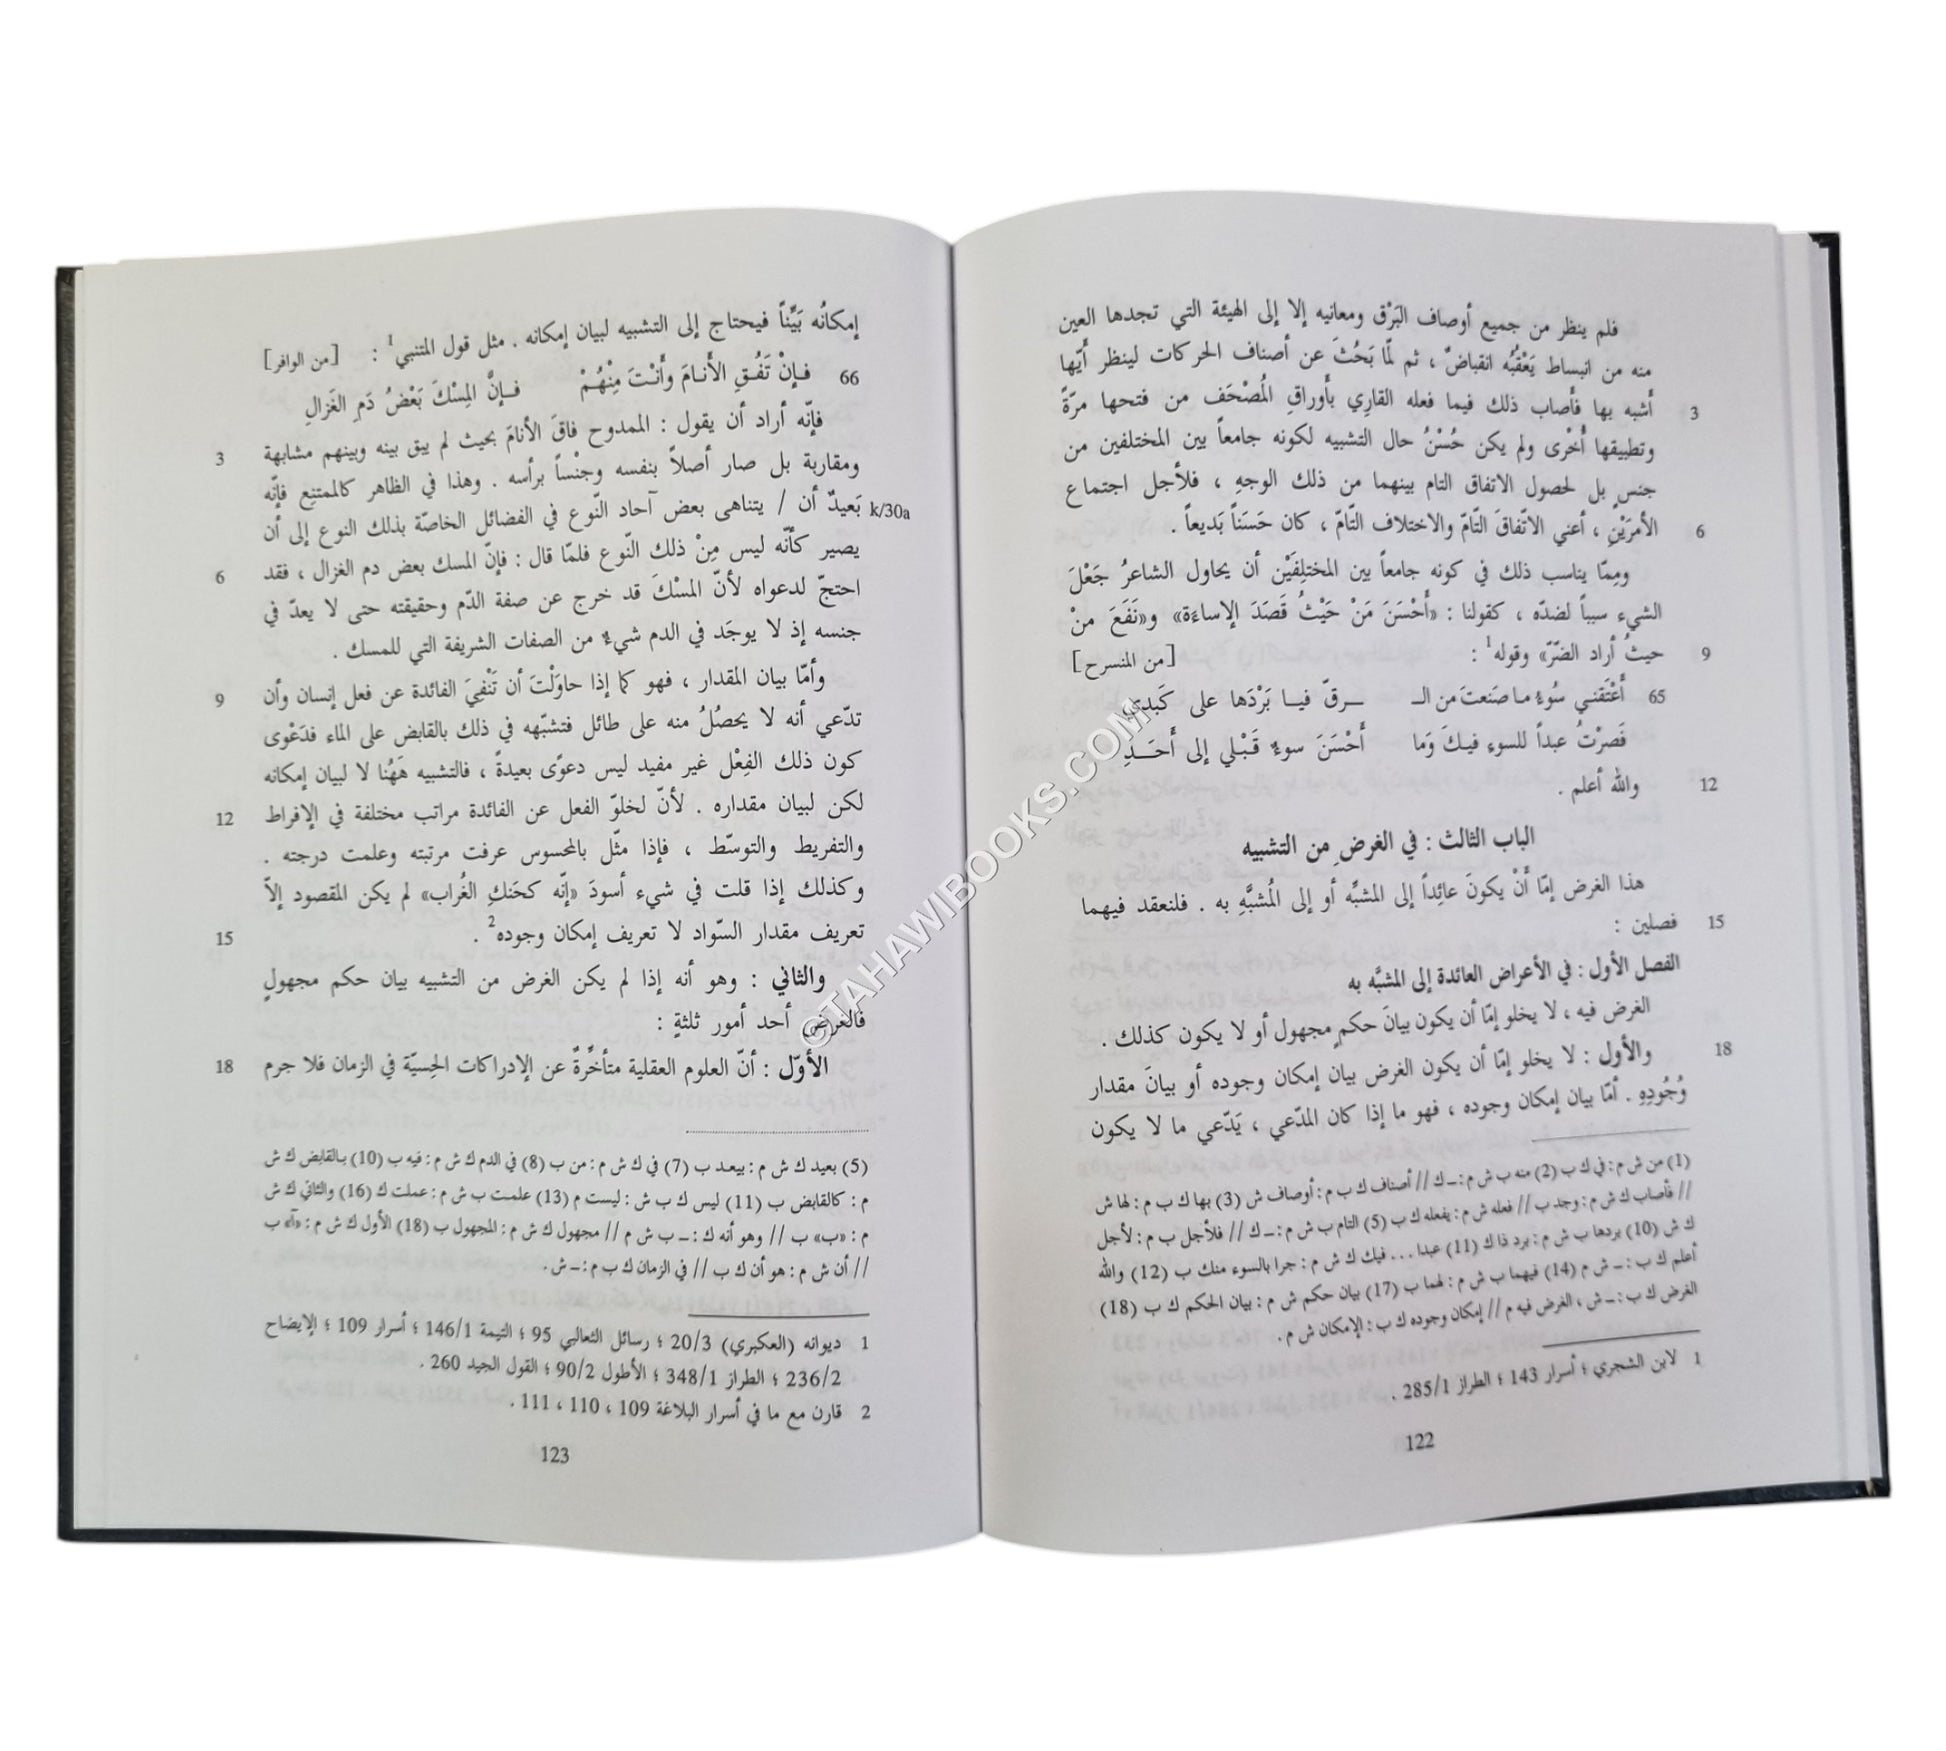 فلم ينظر من جميع أوصاف البَرْق ومعانيه إلا إلى الهيئة التي تجدها العين
منه من انبساط يَعْقُبُه انقباضٌ ، ثم لمّا بَحُثَ عن أصناف الحركات لينظر أيّها
أشبه بها فأصاب ذلك فيما فعله القارِي بأوراقِ المُصْحَف من فتحها مرّةً
3
وتطبيقها أُخْرى ولم يكن حُسْنُ حال التشبيه لكونه جامعاً بين المختلفين من
جنسٍ بل لحصول الاتفاق التام بينهما من ذلك الوجهِ ، فلأجل اجتماع
الأمرَيْنِ ، أعني الاتّفاقَ التّامّ والاختلاف التّامّ ، كان حَسَناً بَديعاً .
6
ومِمّا يناسب ذلك في كونه جامعاً بين المختلِفَيْن أن يحاول الشاعرُ جَعْلَ
الشيء سبباً لضدّه ، كقولنا : «أَحْسَنَ مَنْ حَيْثُ قَصَدَ الإساءَة» و«نَفَعَ منْ
حيثُ أراد الضّرّ» وقوله1 : [من المنسرح]
9
65 أَعْتَقني سُوءُ ما صَنعتَ من الـ ـرقّ فيا بَرْدَها على كَبدي
فَصرْتُ عبداً للسوءِ فيكَ وَما أَحْسَنَ سوءٌ قَبْلي إلى أَحَدِ
والله أعلم .
12
الباب الثالث : في الغرضِ من التشبيه
هذا الغرض إمّا أَنْ يكونَ عائِداً إلى المشبَّه أو إلى المُشبَّهِ به . فلنعقد فيهما
فصلين :
15
الفصل الأول : في الأعراض العائدة إلى المشبَّه به
الغرض فيه ، لا يخلو إمّا أن يكون بيانَ حكمٍ مجهول أو لا يكون كذلك .
والأول : لا يخلو إمّا أن يكون الغرض بيان إمكان وجوده أو بيانَ مقدار
18
وُجُودِهِ . أمّا بيان إمكان وجوده ، فهو ما إذا كان المدّعي ، يَدّعي ما لا يكون
(1) من ش م : في ك ب (2) منه ب ش م : ـ ك // أصناف ك ب م : أوصاف ش (3) بها ك ب م : لها ش
// فأصاب ك ش م : وجد ب // فعله ش م : يفعله ك ب (5) التام ب ش م : ـ ك // فلأجل ب م : لأجل
ك ش (10) بردها ب ش م : برد ذا ك (11) عبدا ... فيك ك ش م : جرا بالسوء منك ب (12) والله
أعلم ك ب : ـ ش م (14) فيهما ب ش م : لهما ب (17) بيان حكم ش م : بيان الحكم ك ب (18)
الغرض ك ب : ـ ش ، الغرض فيه م // إمكان وجوده ك ب : الإمكان ش م .
1 لابن الشجري ؛ أسرار 143 ؛ الطراز 285/1 .
122
إمكانُه بَيِّناً فيحتاج إلى التشبيه لبيان إمكانه . مثل قول المتنبي1 : [من الوافر]
66 فإنْ تَفُقِ الأَنامَ وأَنْتَ مِنْهُمْ فإنَّ المِسْكَ بَعْضُ دَمِ الغَزالِ
فإنّه أراد أن يقول : الممدوح فاقَ الأنامَ بحيث لم يبق بينه وبينهم مشابهة
3
ومقاربة بل صار أصلاً بنفسه وجنْساً برأسه . وهذا في الظاهر كالممتنع فإنّه
k/30a بَعيدٌ أن / يتناهى بعض آحاد النّوع في الفضائل الخاصّة بذلك النوع إلى أن
يصير كأنّه ليس مِنْ ذلك النّوع فلمّا قال : فإنّ المسك بعض دم الغزال ، فقد
6
احتجّ لدعواه لأنّ المسْكَ قد خرج عن صفة الدّم وحقيقته حتى لا يعدّ في
جنسه إذ لا يوجَد في الدم شيءٌ من الصفات الشريفة التي للمسك .
وأمّا بيان المقدار ، فهو كما إذا حاوَلْتَ أن تَنْفِيَ الفائدة عن فعل إنسان وأن
9
تدّعي أنه لا يحصُلُ منه على طائل فتشبّهه في ذلك بالقابض على الماء فدَعْوى
كون ذلك الفِعْل غير مفيد ليس دعوًى بعيدةً ، فالتشبيه هَهُنا لا لبيان إمكانه
لكن لبيان مقداره . لأنّ لخلوّ الفعل عن الفائدة مراتب مختلفة في الإفراط
12
والتفريط والتوسّط ، فإذا مثّل بالمحسوس عرفت مرتبته وعلمت درجته .
وكذلك إذا قلت في شيء أسودَ «إنّه كحَنكِ الغُراب» لم يكن المقصود إلاّ
تعريف مقدار السّواد لا تعريف إمكان وجوده2 .
15
والثاني : وهو أنه إذا لم يكن الغرض من التشبيه بيان حكم مجهولٍ
فالغرض أحد أمور ثلثةٍ :
الأوّل : أنّ العلوم العقلية متأخّرةٌ عن الإدراكات الحِسيّة في الزمان فلا جرم
18
(5) بعيد ك ش م : يبعد ب (7) في ك ش م : من ب (8) في الدم ك ش م : فيه ب (10) بالقابض ك ش
م : كالقابض ب (11) ليس ك ب ش : ليست م (13) علمت ب ش م : عملت ك (16) والثاني ك ش
م : «ب» ب // وهو أنه ك : ـ ب ش م // مجهول ك ش م : المجهول ب (18) الأول ك ش م : «آ» ب
// أن ش م : هو أن ك ب // في الزمان ك ب م : ـ ش .
1 ديوانه (العكبري) 20/3 ؛ رسائل الثعالبي 95 ؛ التيمة 146/1 ؛ أسرار 109 ؛ الإيضاح
236/2 ؛ الطراز 348/1 ؛ الأطول 90/2 ؛ القول الجيد 260 .
2 قارن مع ما في أسرار البلاغة 109 ، 110 ، 111 .
123
©TAHAWIBOOKS.COM